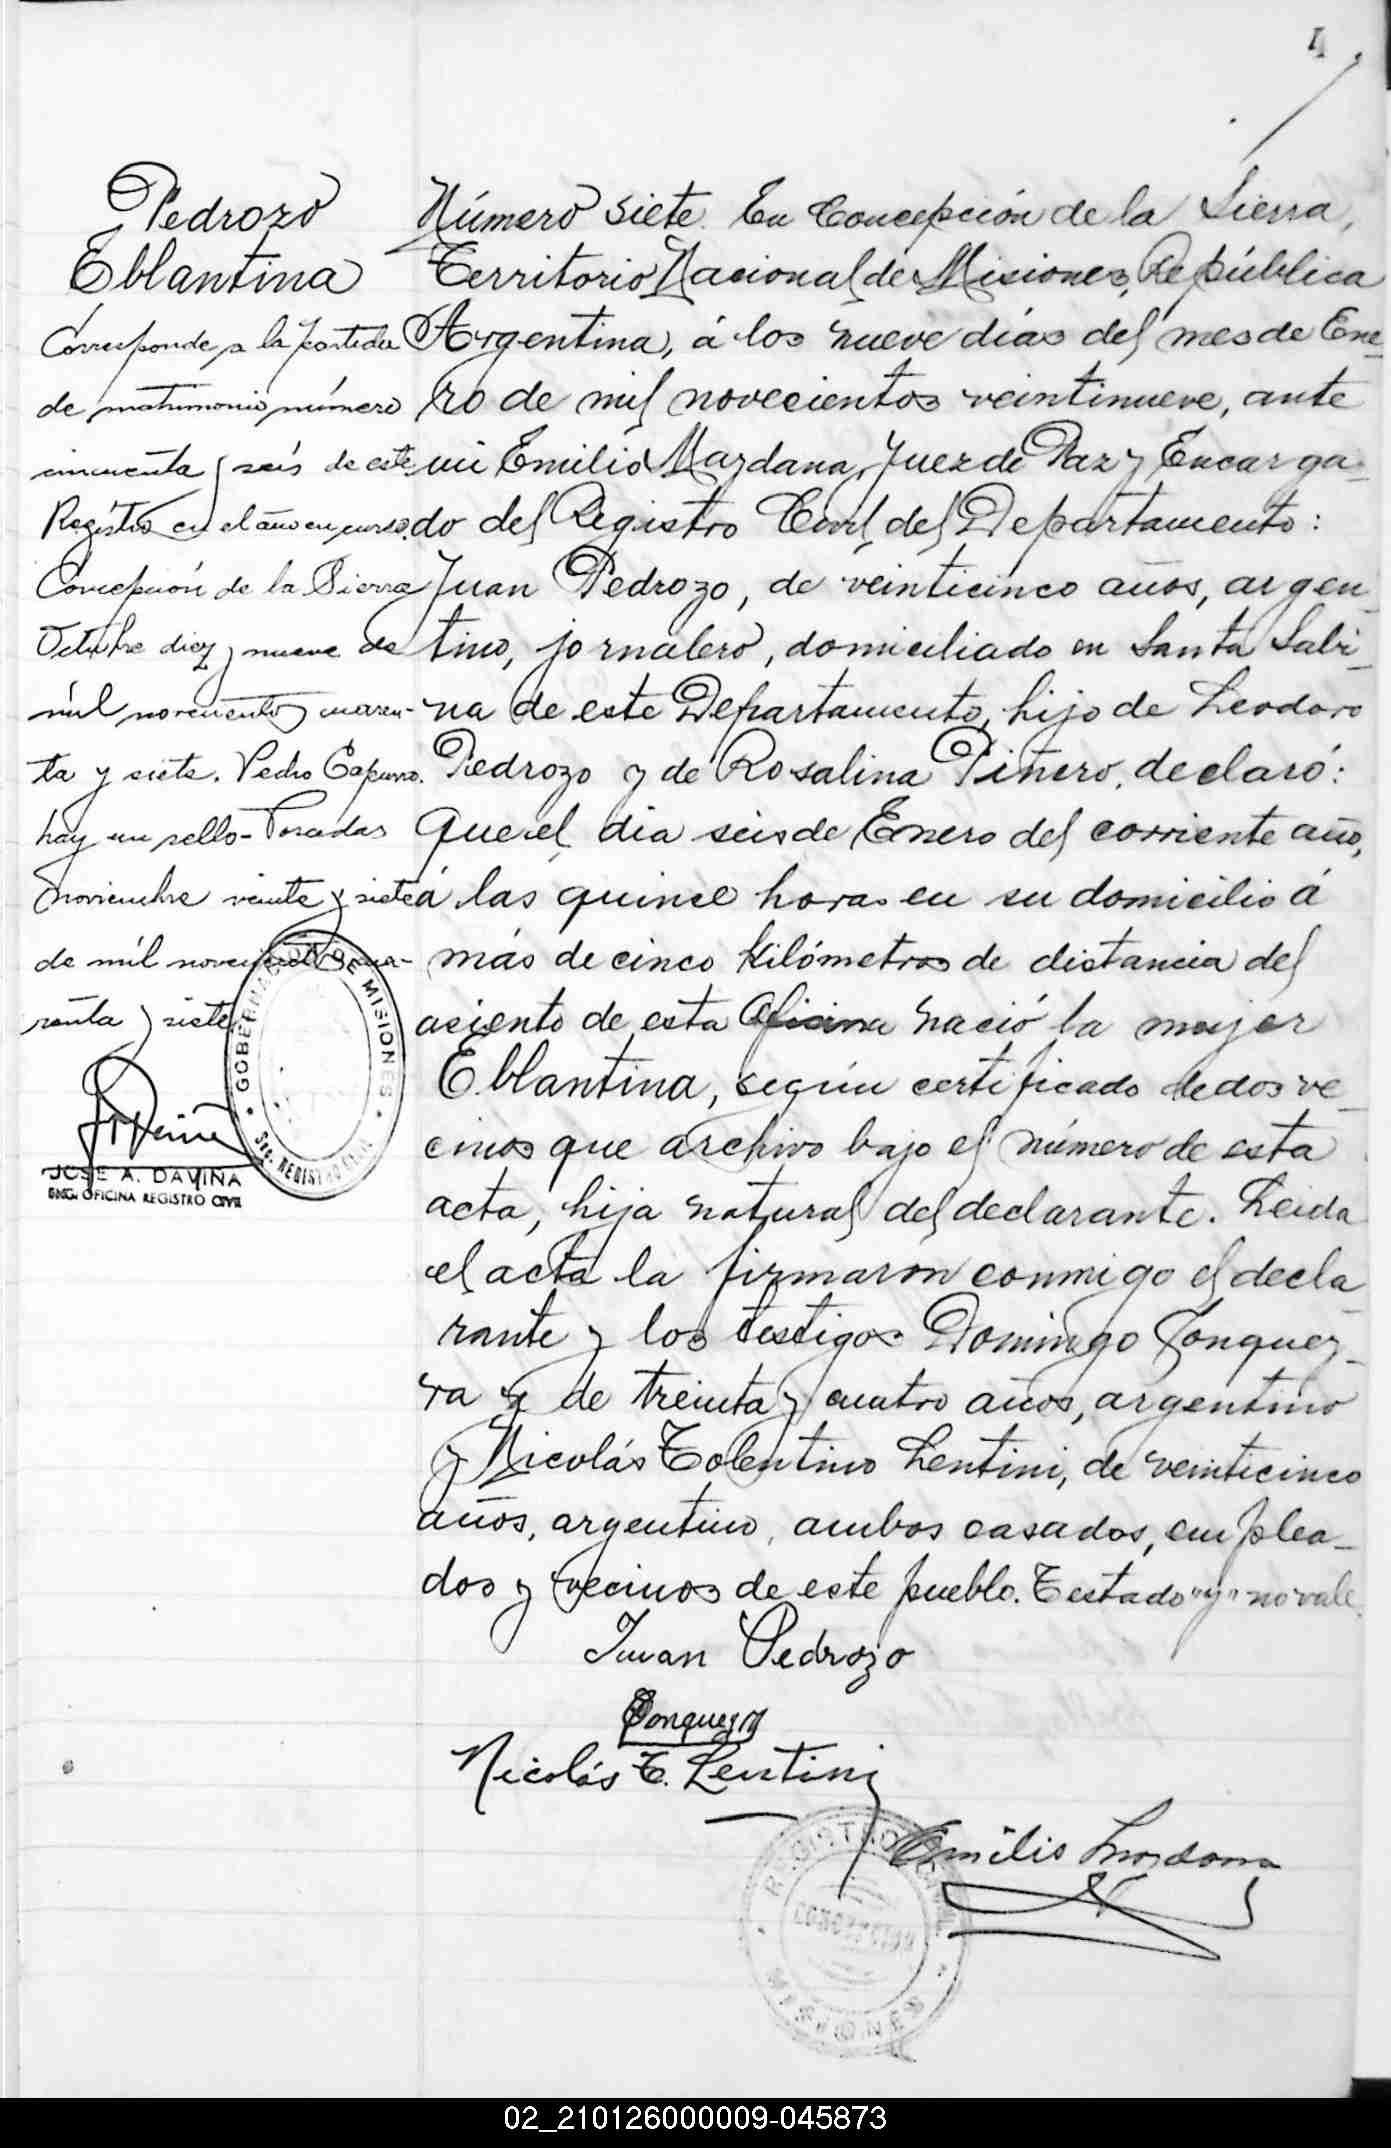 4
Pedrozo
Eblantina
Corresponde a la partida
de matrimonio número
cincuenta y seis de este
Registro en el año en curso.
Concepción de la Sierra
Octubre diez y nueve de
mil novecientos cuaren-
ta y siete. Pedro
hay un sello - Posadas
Noviembre veinte y siete
de mil novecientos cua-
renta y siete
GOBERNACION DE MISIONES
REGISTRO CIVIL
JOSE A. DAVIÑA
ENC. OFICINA REGISTRO CIVIL
Número siete. En Concepción de la Sierra,
Territorio Nacional de Misiones, República
Argentina, á los nueve días del mes de Ene-
ro de mil novecientos veintinueve, ante
mi Emilio Mazdana, Juez de Paz y Encarga-
do del Registro Civil del Departamento:
Juan Pedrozo, de veinticinco años, argen-
tino, jornalero, domiciliado en Santa Sabi-
na de este Departamento, hijo de Leodoro
Pedrozo y de Rosalina Piñero, declaró:
Que el día seis de Enero del corriente año,
á las quince horas en su domicilio á
más de cinco kilómetros de distancia del
asiento de esta Oficina nació la mujer
Eblantina, según certificado de dos ve-
cinos que archivo bajo el número de esta
acta, hija natural del declarante. Leida
el acta la firmaron conmigo el decla-
rante y los testigos Domingo Jonquez-
ra y de treinta y cuatro años, argentino
y Nicolás Tolentino Lentini, de veinticinco
años, argentino, ambos casados, emplea-
dos y vecinos de este pueblo. Testado "y" no vale.
Juan Pedrozo
Nicolás T. Lentini
Emilio Mazdana
REGISTRO CIVIL
MISIONES
02_210126000009-045873